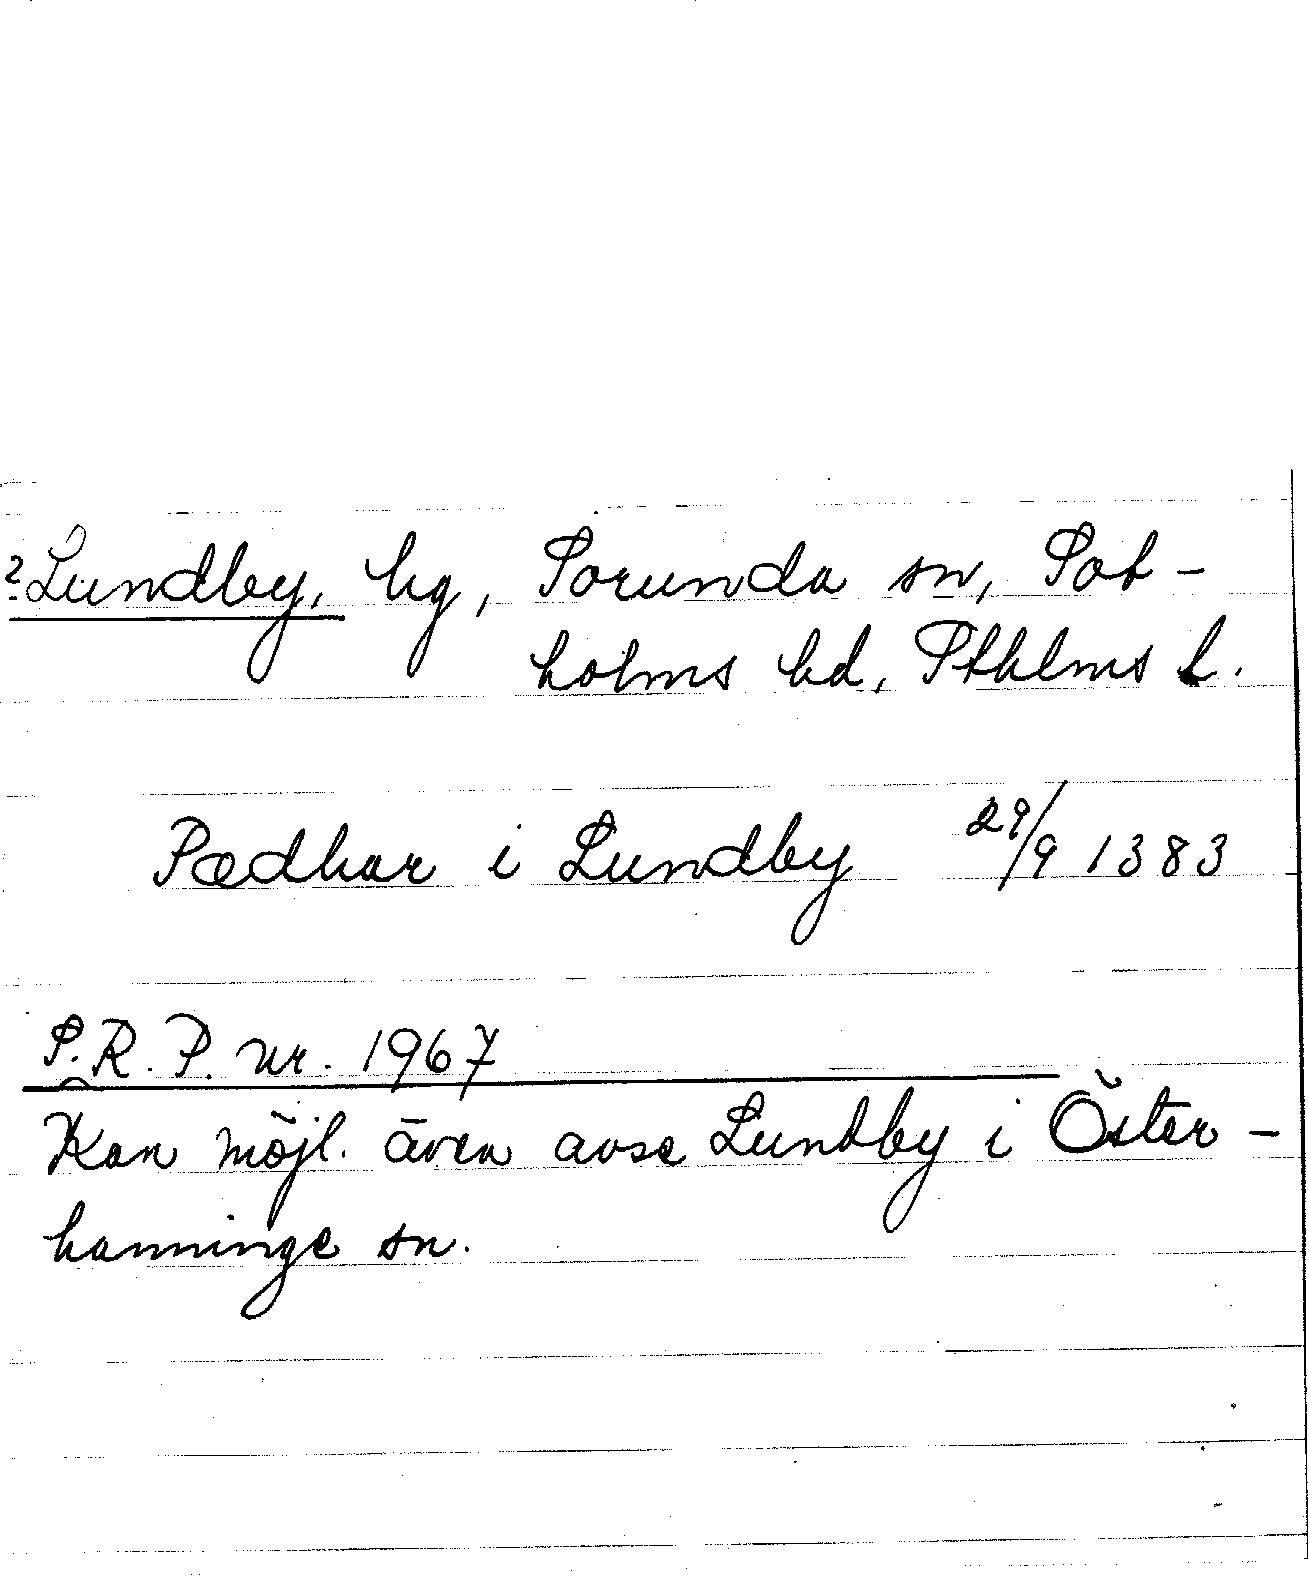 ?Lundby, hg, Sorunda sn, Sot-
holms hd, Sthlms l.
Pædhar i Lundby 29/9 1383
S.R.P. nr. 1967
Kan möjl. även avse Lundby i Öster-
hanninge sn.